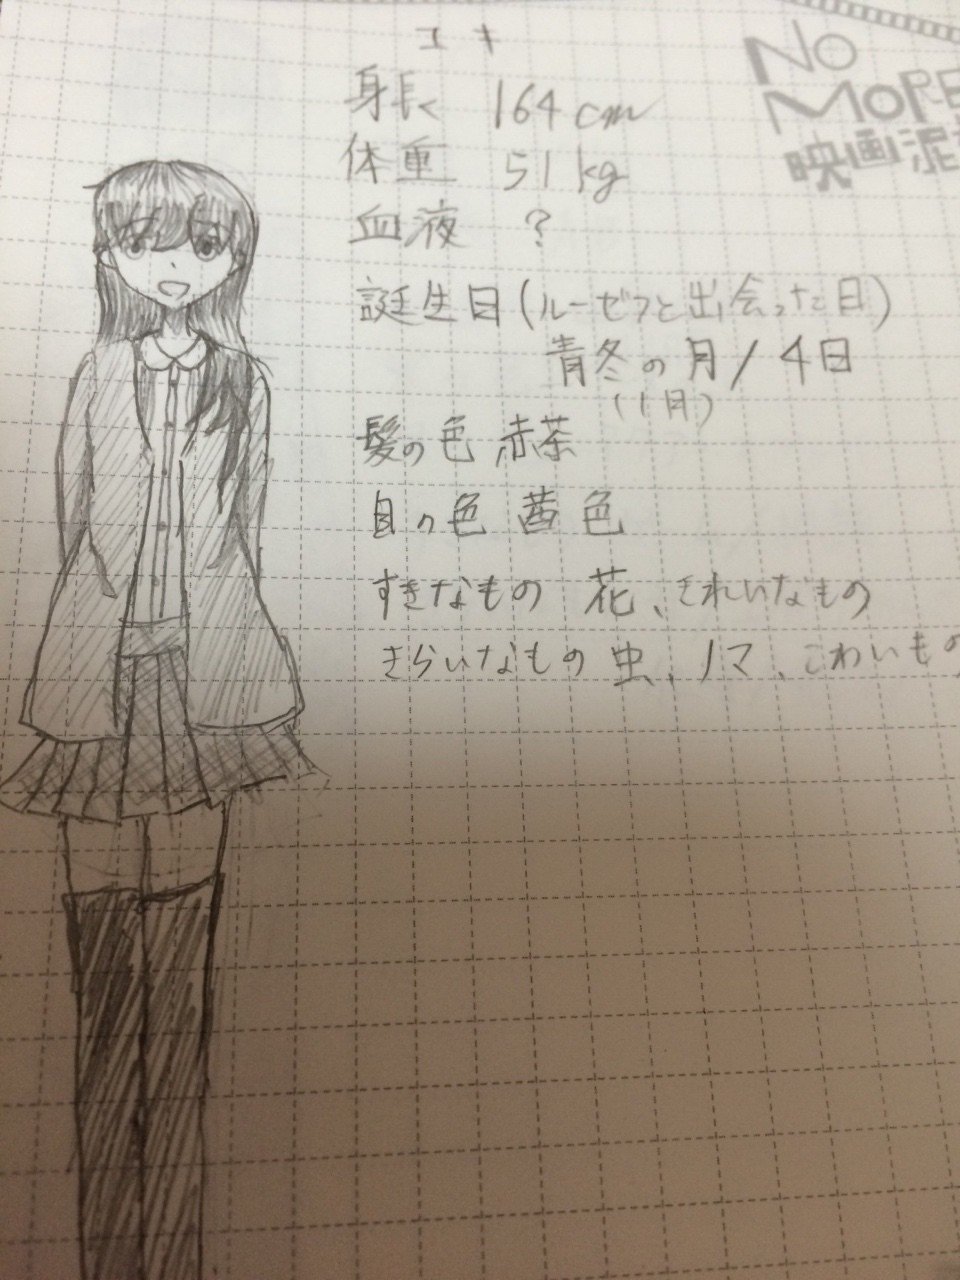 ユキ
身長 164cm
体重 51kg
血液 ?
誕生日(ルーゼフと出会った日)
青冬の月/4日
(1月)
髪の色 赤茶
目の色 茜色
すきなもの 花、きれいなもの
きらいなもの 虫、ノマ、こわいもの
NO
MORE
映画泥